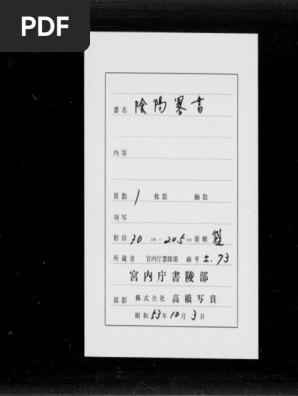 PDF
書名 陰陽畧書
内容
員数 1 枚数 齣数
刊写
形状 30 cm 20.5 cm 装幀
所蔵者 宮内庁書陵部 函号 土.73
宮内庁書陵部
撮影 株式会社 高橋写真
昭和53年10月3日